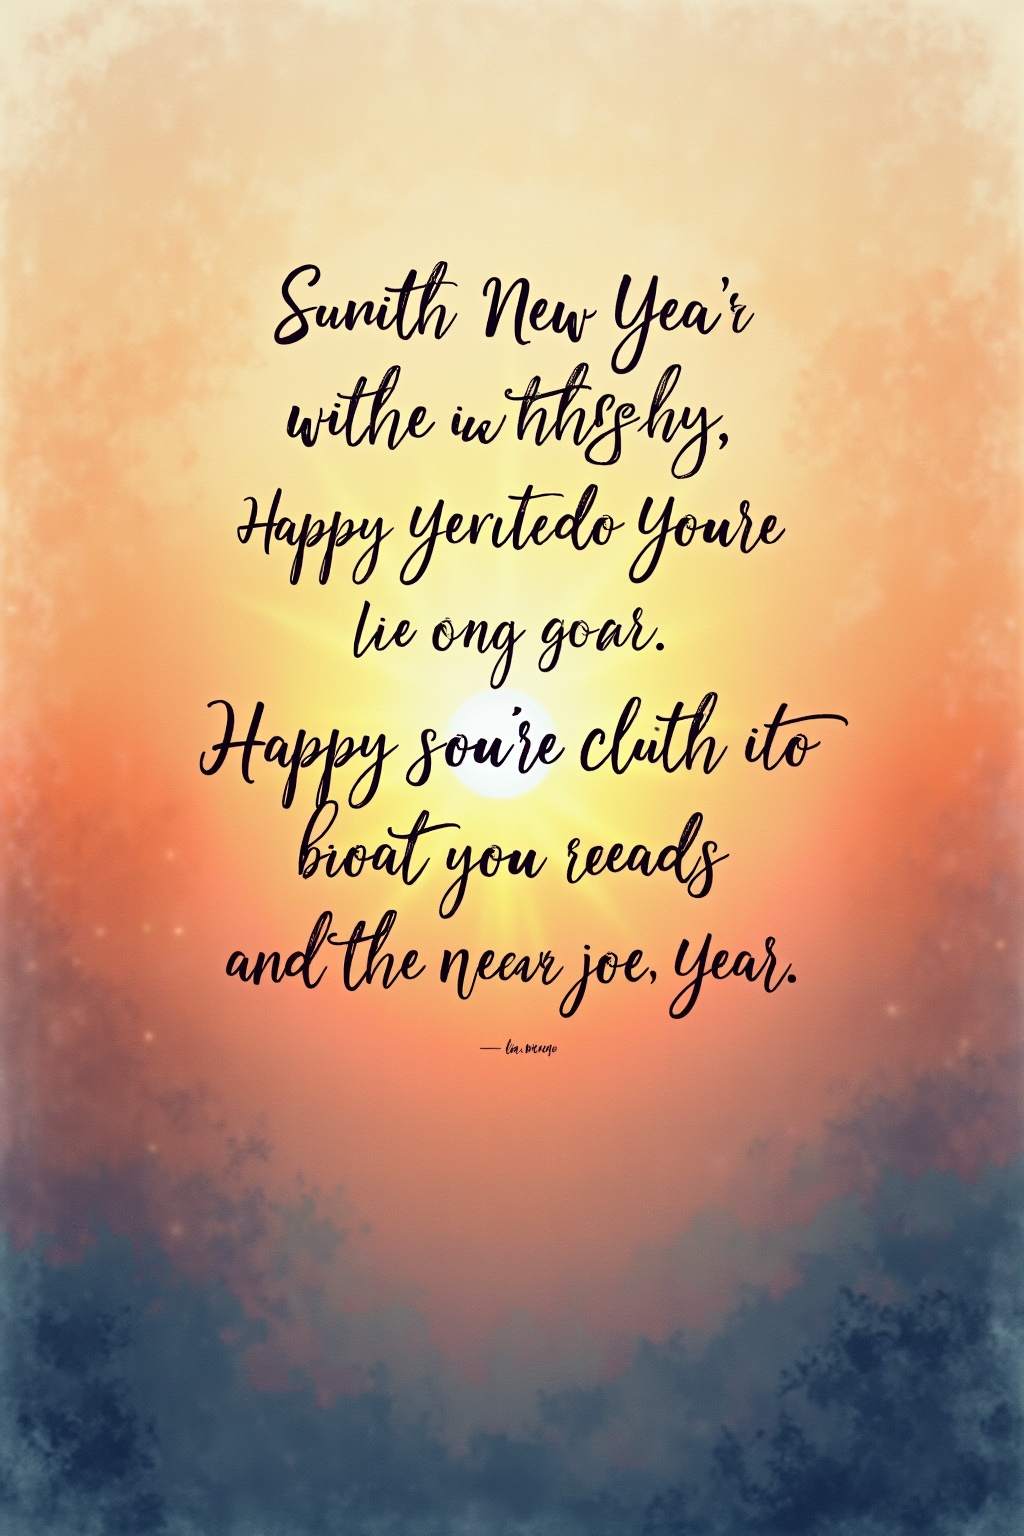 Sunith New Yea'r
withe iu hhsghy,
Happy Yenteedo Youre
lie ong goar.
Happy sou're cluth ito
bioat you reeads
and the neear joe, Year.